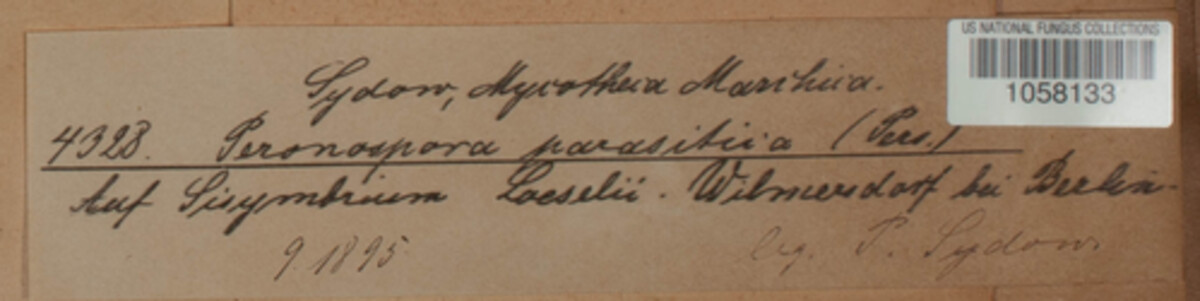 US NATIONAL FUNGUS COLLECTIONS
1058133
Sydow, Mycotheca Marchica.
4328. Peronospora parasitica (Pers.)
Auf Sisymbrium Loeselii. Wilmersdorf bei Berlin.
9. 1895. leg. P. Sydow.